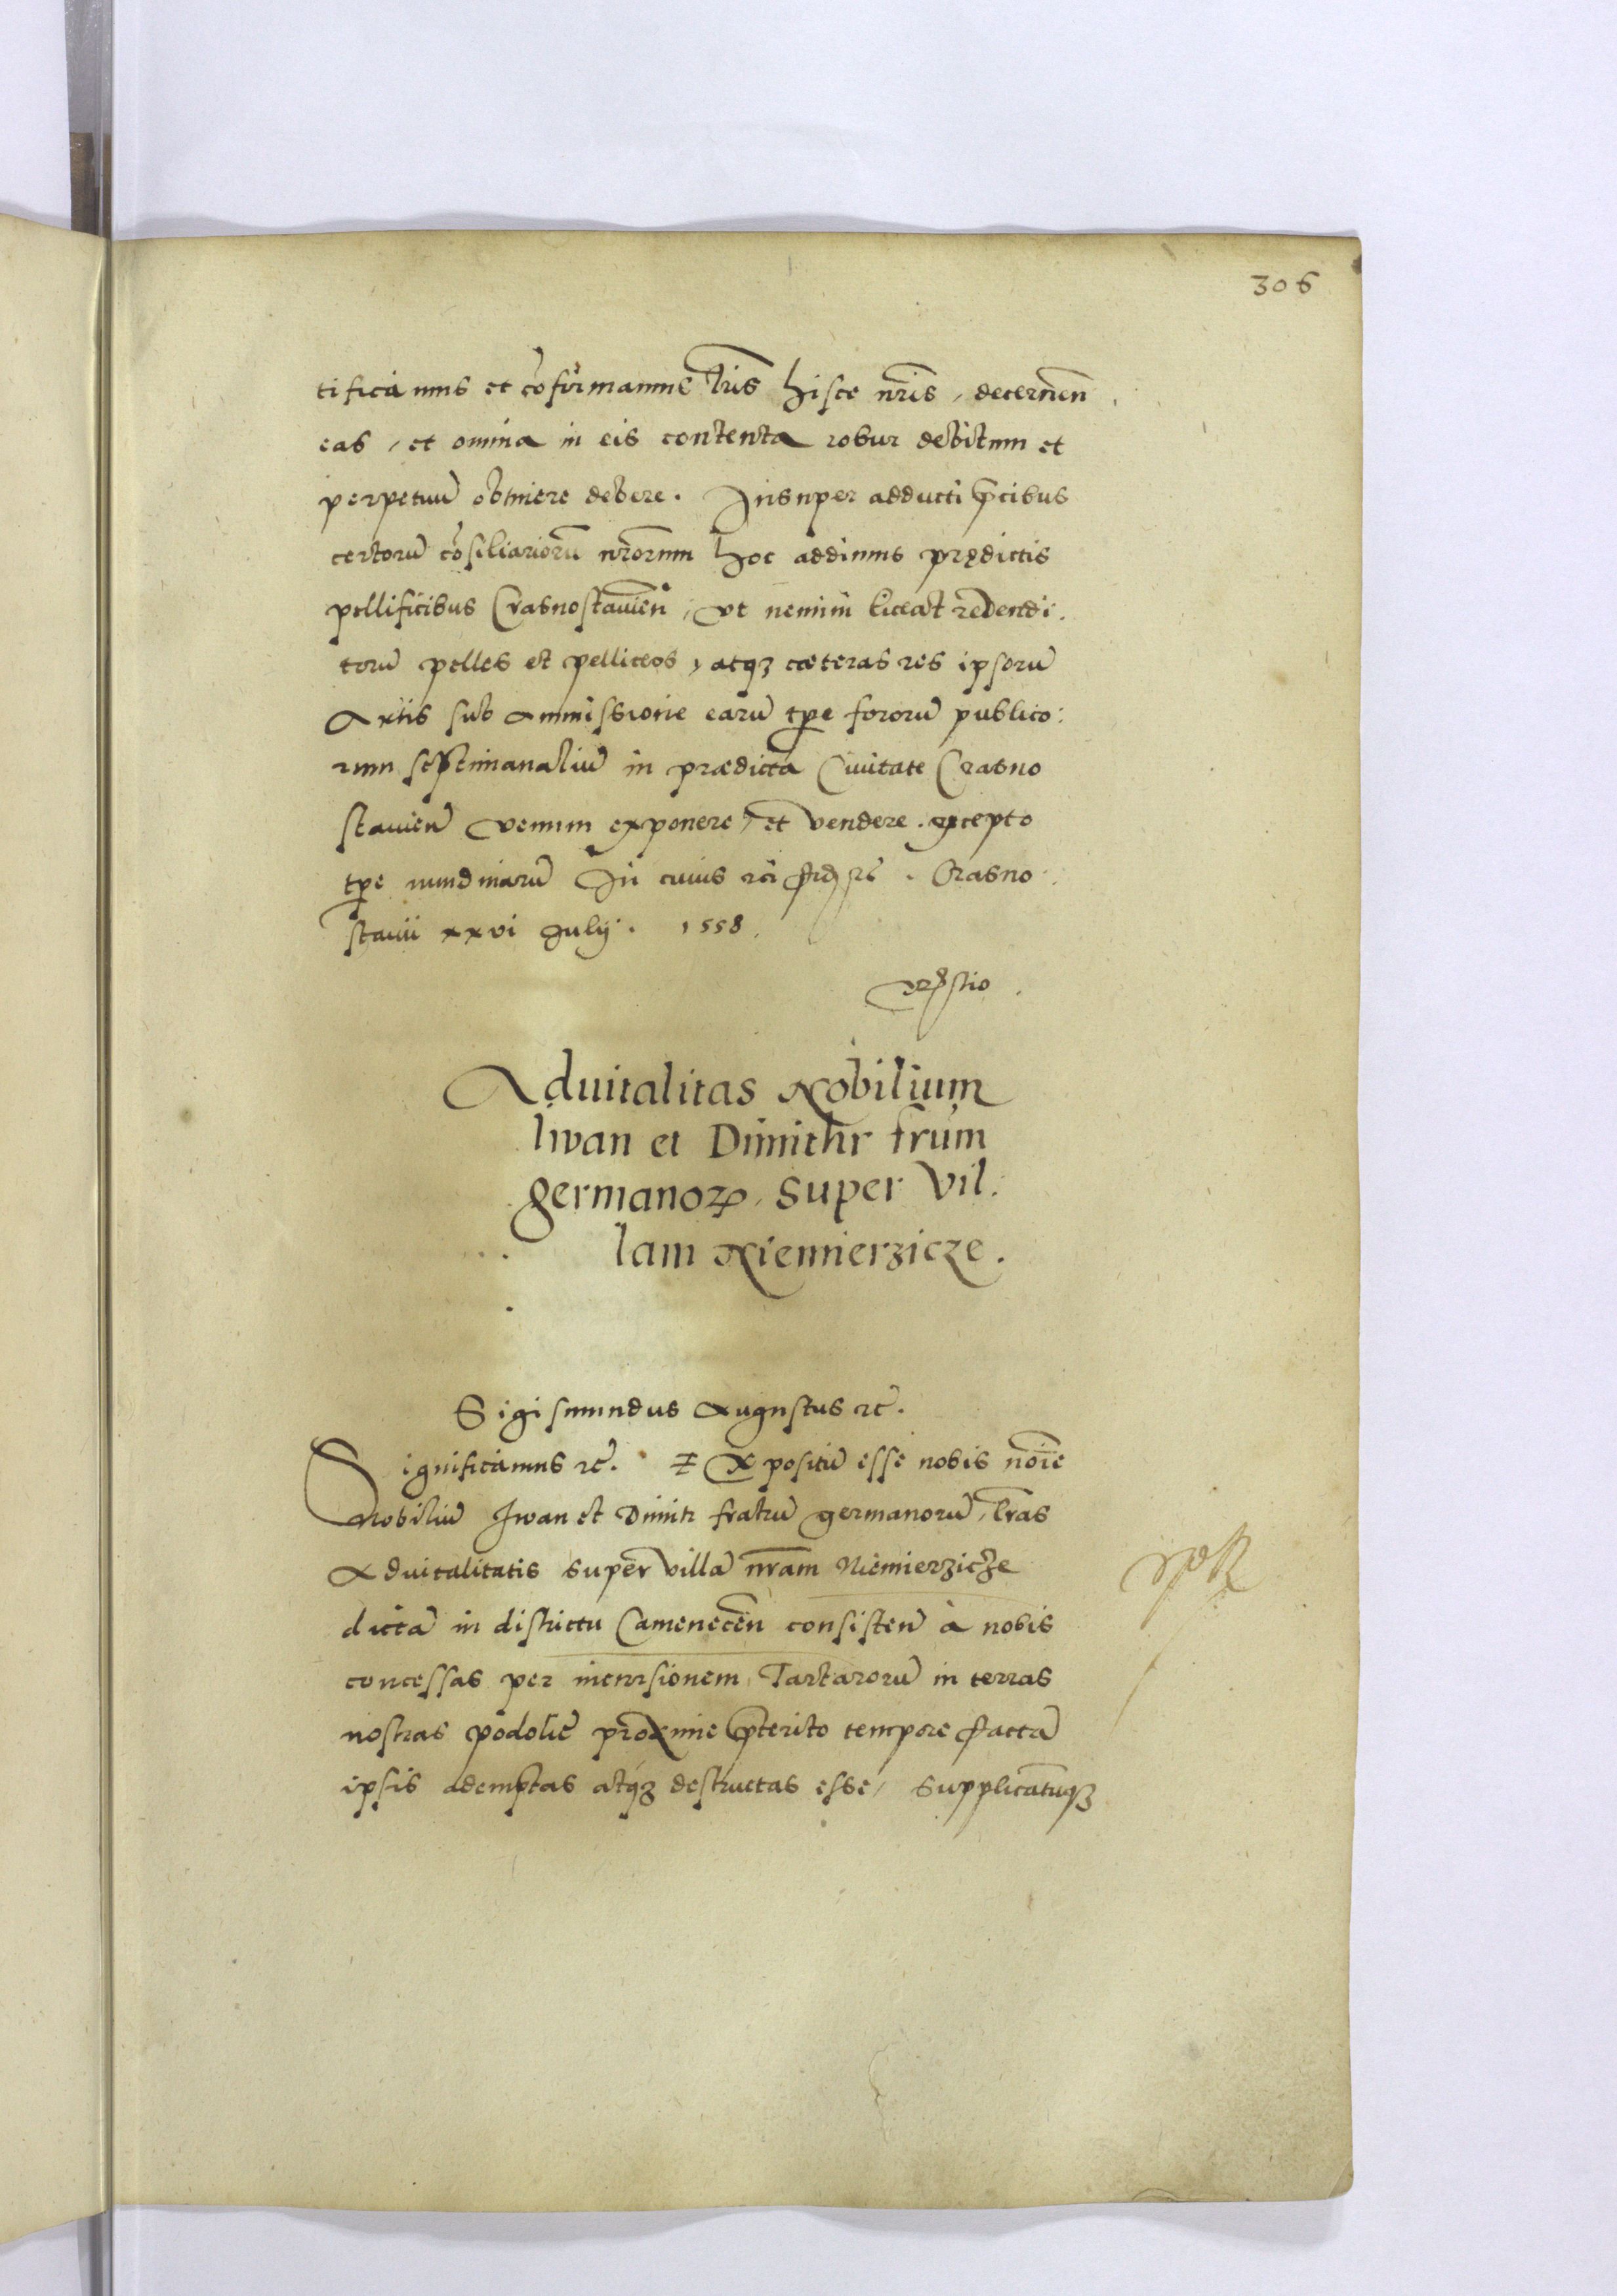 306
tificamus et cõfirmamus lr̃is hisce nr̃is, decernen̄
eas, et omnia in eis contenta robur debitum et
perpetuũ obtinere debere. Insuper adducti p̄cibus
certorũ cõsiliariorũ nr̃orum hoc addimus prędictis
pellificibus Crasnostawien̄, vt nemini liceat
torũ pelles et pelliceos, atq3 cæteras res ipsorũ
Artis sub ammissione earũ tpe fororũ publico:
rum septimanaliũ in prædicta Ciuitate Crasno
stauien̄ venum exponere, et vendere. excepto
tpe nundinarũ In cuius rei fid rc̃. Crasno:
stauii xxvi Julij. 1558.
Aduitalitas Nobilium
Iwan et Dimithr frum̄
germanoꝝ, super Vil:
lam Niemierzicze.
Sigismundus Augustus rc̃.
Significamus rc̃. Expositũ esse nobis noīe
Nobiliũ Iwan et Dimitr fratrũ germanorũ, lr̃as
Aduitalitatis super villã nr̃am Niemierzicze
dictã in districtu Camenecen̄ consisten̄ à nobis
concessas per incursionem Tartarorũ in terras
nostras podolię proxime p̄terito tempore factã
ipsis ademptas atq3 destructas esse, supplicatũq3